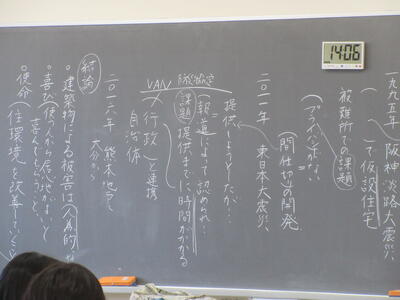 一九九五年 阪神淡路大震災、
( )で仮設住宅
被難所での課題
(プライバシーがない)
=
(間仕切り)の開発
二〇一一年 東日本大震災、
提供しようとしたが…
(報道)によって認められ…
課題 提供までに時間がかかる
VAN 防災協定
(行政)と連携
自治体
二〇一六年 熊本地震
大分から
結論
・建築物による被害は(人為的)な
・喜び(使う人から居心地がよいと
喜んでもらうこと、
・使命(住環境を改善していくこと
14:06